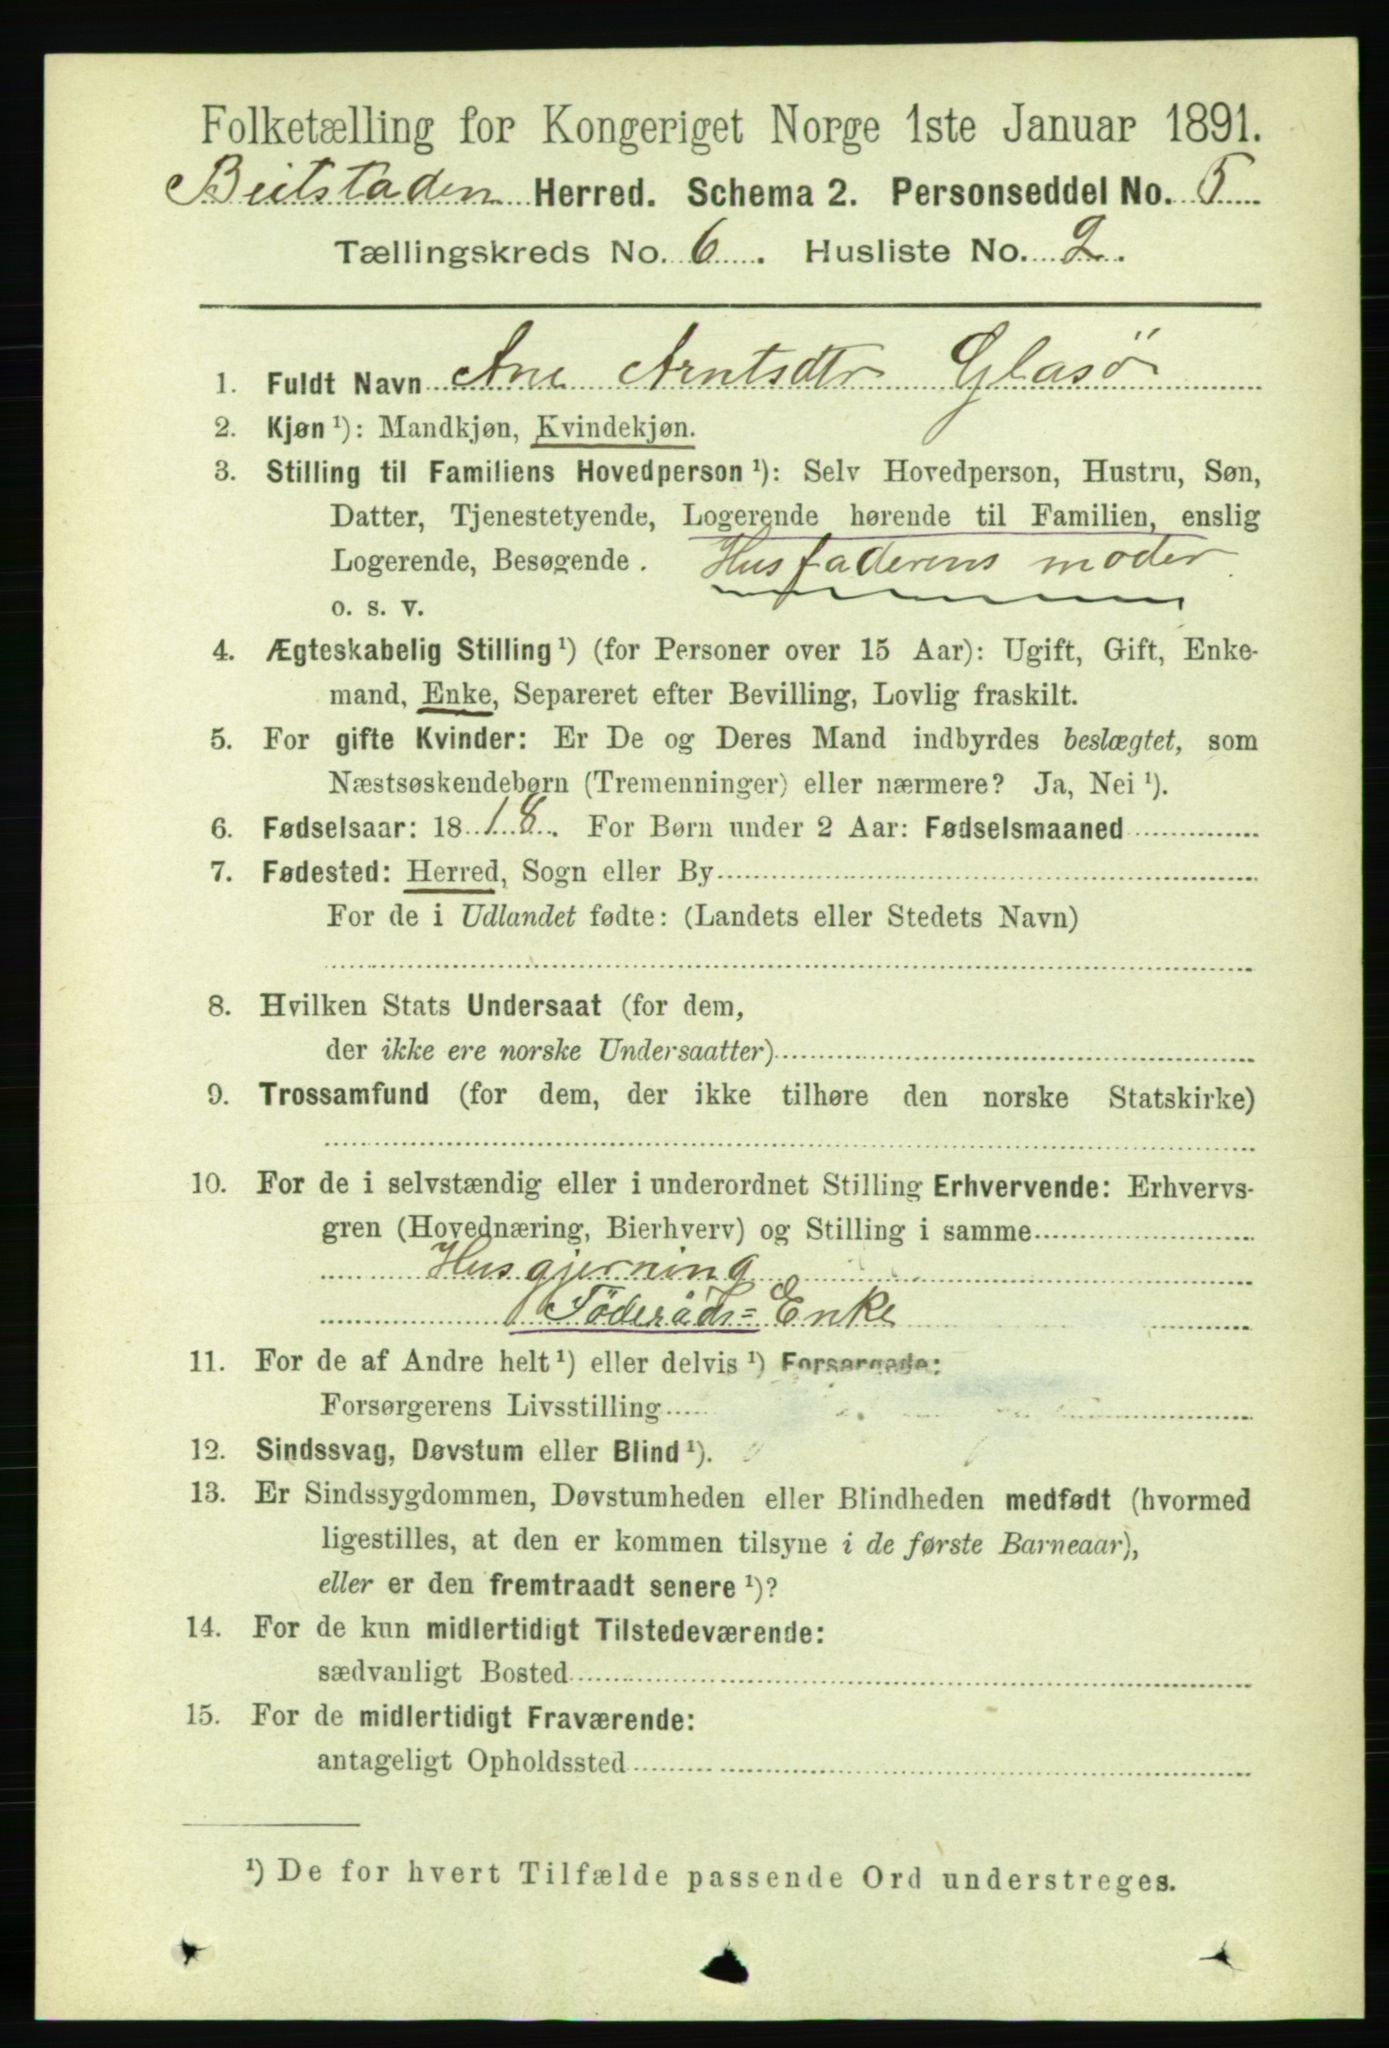 Folketælling for Kongeriget Norge 1ste Januar 1891.
Beitstaden Herred. Schema 2. Personseddel No. 5
Tællingskreds No. 6. Husliste No. 2.
1. Fuldt Navn Ane Arntsdtr Glasö
2. Kjøn ¹): Mandkjøn, Kvindekjøn.
3. Stilling til Familiens Hovedperson ¹): Selv Hovedperson, Hustru, Søn,
Datter, Tjenestetyende, Logerende hørende til Familien, enslig
Logerende, Besøgende . Husfaderens moder
o. s. v.
4. Ægteskabelig Stilling ¹) (for Personer over 15 Aar): Ugift, Gift, Enke-
mand, Enke, Separeret efter Bevilling, Lovlig fraskilt.
5. For gifte Kvinder: Er De og Deres Mand indbyrdes beslægtet, som
Næstsøskendebørn (Tremenninger) eller nærmere? Ja, Nei ¹).
6. Fødselsaar: 18 18. For Børn under 2 Aar: Fødselsmaaned
7. Fødested: Herred, Sogn eller By
For de i Udlandet fødte: (Landets eller Stedets Navn)
8. Hvilken Stats Undersaat (for dem,
der ikke ere norske Undersaatter)
9. Trossamfund (for dem, der ikke tilhøre den norske Statskirke)
10. For de i selvstændig eller i underordnet Stilling Erhvervende: Erhvervs-
gren (Hovednæring, Bierhverv) og Stilling i samme
Husgjerning
Föderåds=Enke
11. For de af Andre helt ¹) eller delvis ¹) Forsørgede:
Forsørgerens Livsstilling
12. Sindssvag, Døvstum eller Blind ¹).
13. Er Sindssygdommen, Døvstumheden eller Blindheden medfødt (hvormed
ligestilles, at den er kommen tilsyne i de første Barneaar),
eller er den fremtraadt senere ¹)?
14. For de kun midlertidigt Tilstedeværende:
sædvanligt Bosted
15. For de midlertidigt Fraværende:
antageligt Opholdssted
¹) De for hvert Tilfælde passende Ord understreges.